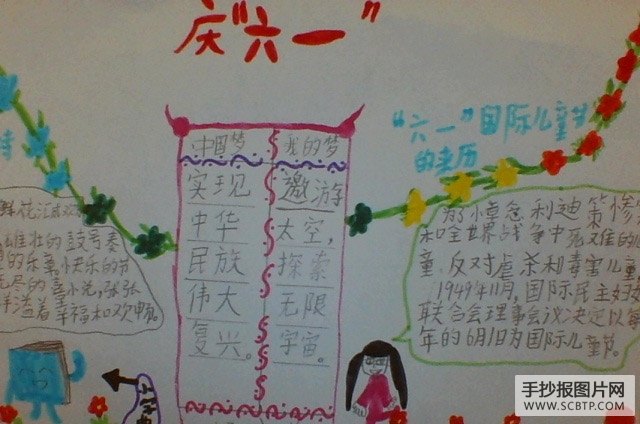 庆“六一”
诗
鲜花汇成欢
雄壮的鼓号奏
的乐章,快乐的节
尽的喜悦,张张
洋溢着幸福和欢畅。
中国梦
实现
中华
民族
伟大
复兴。
我的梦
遨游
太空,
探索
无限
宇宙。
“六一”国际儿童节
的来历
为了悼念利迪策惨
和全世界战争中死难的
童,反对虐杀和毒害儿童
1949年11月,国际民主妇
联合会理事会议决定以每
年的6月1日为国际儿童节。
手抄报图片网
WWW.SCBTP.COM